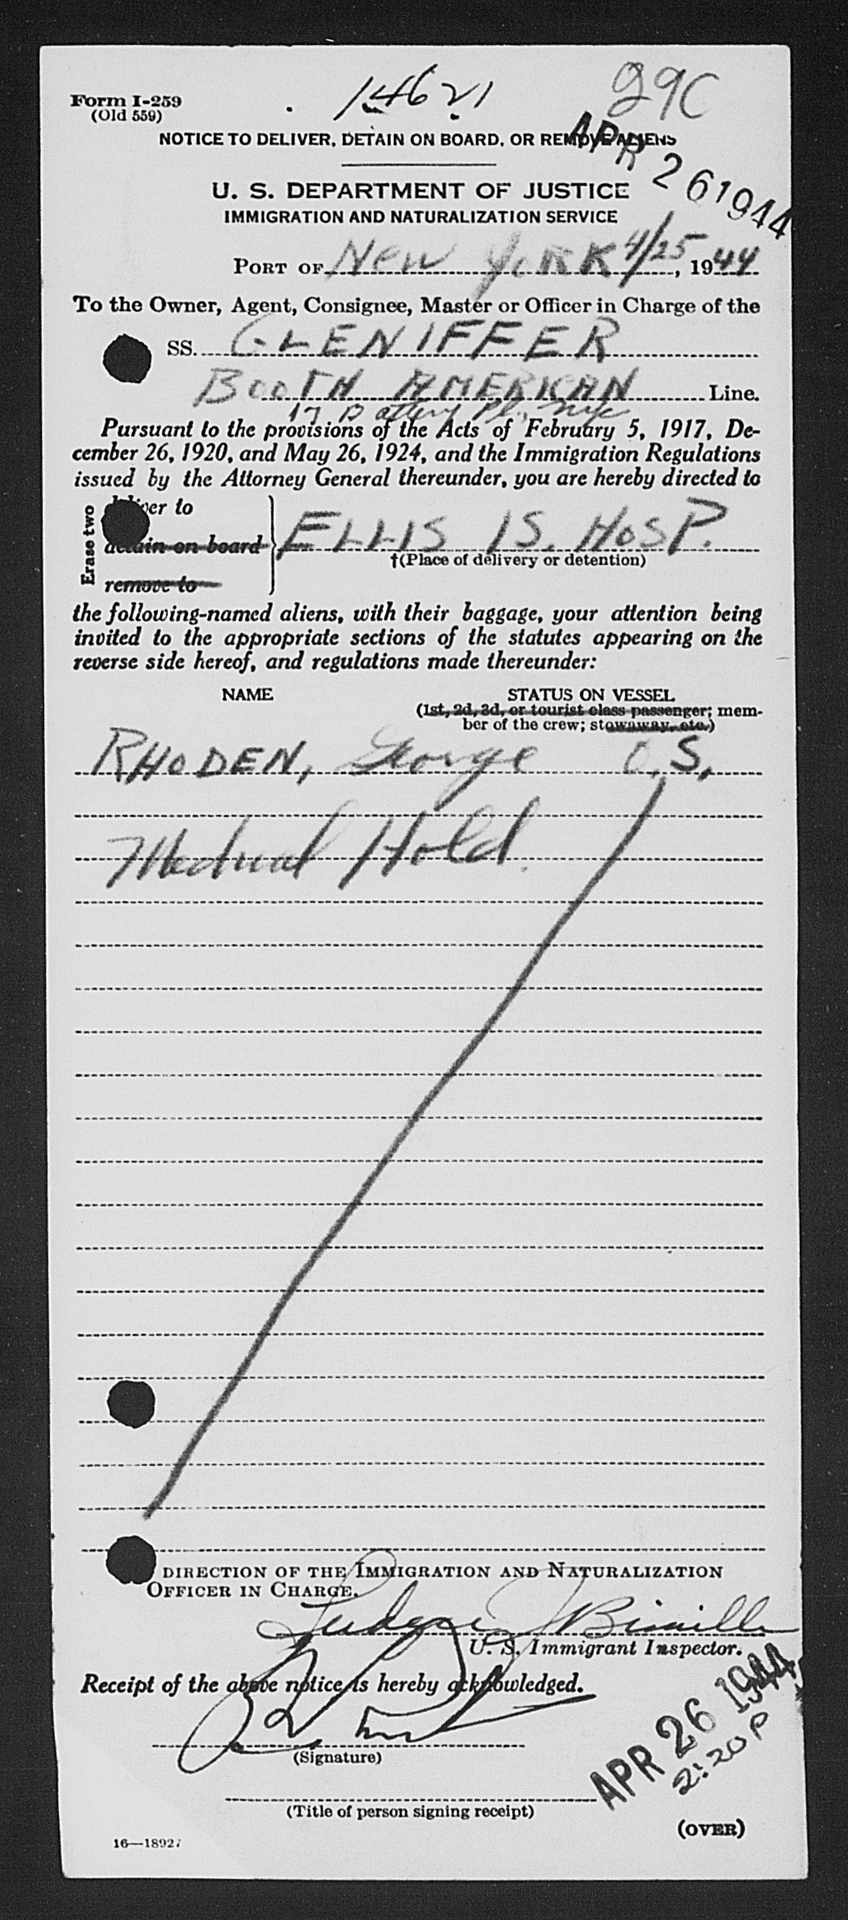 Form I-259
(Old 559)
14621
29C
NOTICE TO DELIVER, DETAIN ON BOARD, OR REMOVE ALIENS
APR 26 1944
U. S. DEPARTMENT OF JUSTICE
IMMIGRATION AND NATURALIZATION SERVICE
PORT OF New YORK 4/25, 1944
To the Owner, Agent, Consignee, Master or Officer in Charge of the
SS. GLENIFFER
BOOTH AMERICAN Line.
17 Battery Pl. NYC
Pursuant to the provisions of the Acts of February 5, 1917, De-
cember 26, 1920, and May 26, 1924, and the Immigration Regulations
issued by the Attorney General thereunder, you are hereby directed to
Erase two
deliver to
detain on board
remove to
ELLIS IS. HOSP.
†(Place of delivery or detention)
the following-named aliens, with their baggage, your attention being
invited to the appropriate sections of the statutes appearing on the
reverse side hereof, and regulations made thereunder:
NAME STATUS ON VESSEL
(1st, 2d, 3d, or tourist class passenger; mem-
ber of the crew; stowaway, etc.)
RHODEN, George O.S.
Medical Hold.
DIRECTION OF THE IMMIGRATION AND NATURALIZATION
OFFICER IN CHARGE.
U. S. Immigrant Inspector.
Receipt of the above notice is hereby acknowledged.
(Signature)
APR 26 1944
2:20 P
(Title of person signing receipt)
(OVER)
16—18927